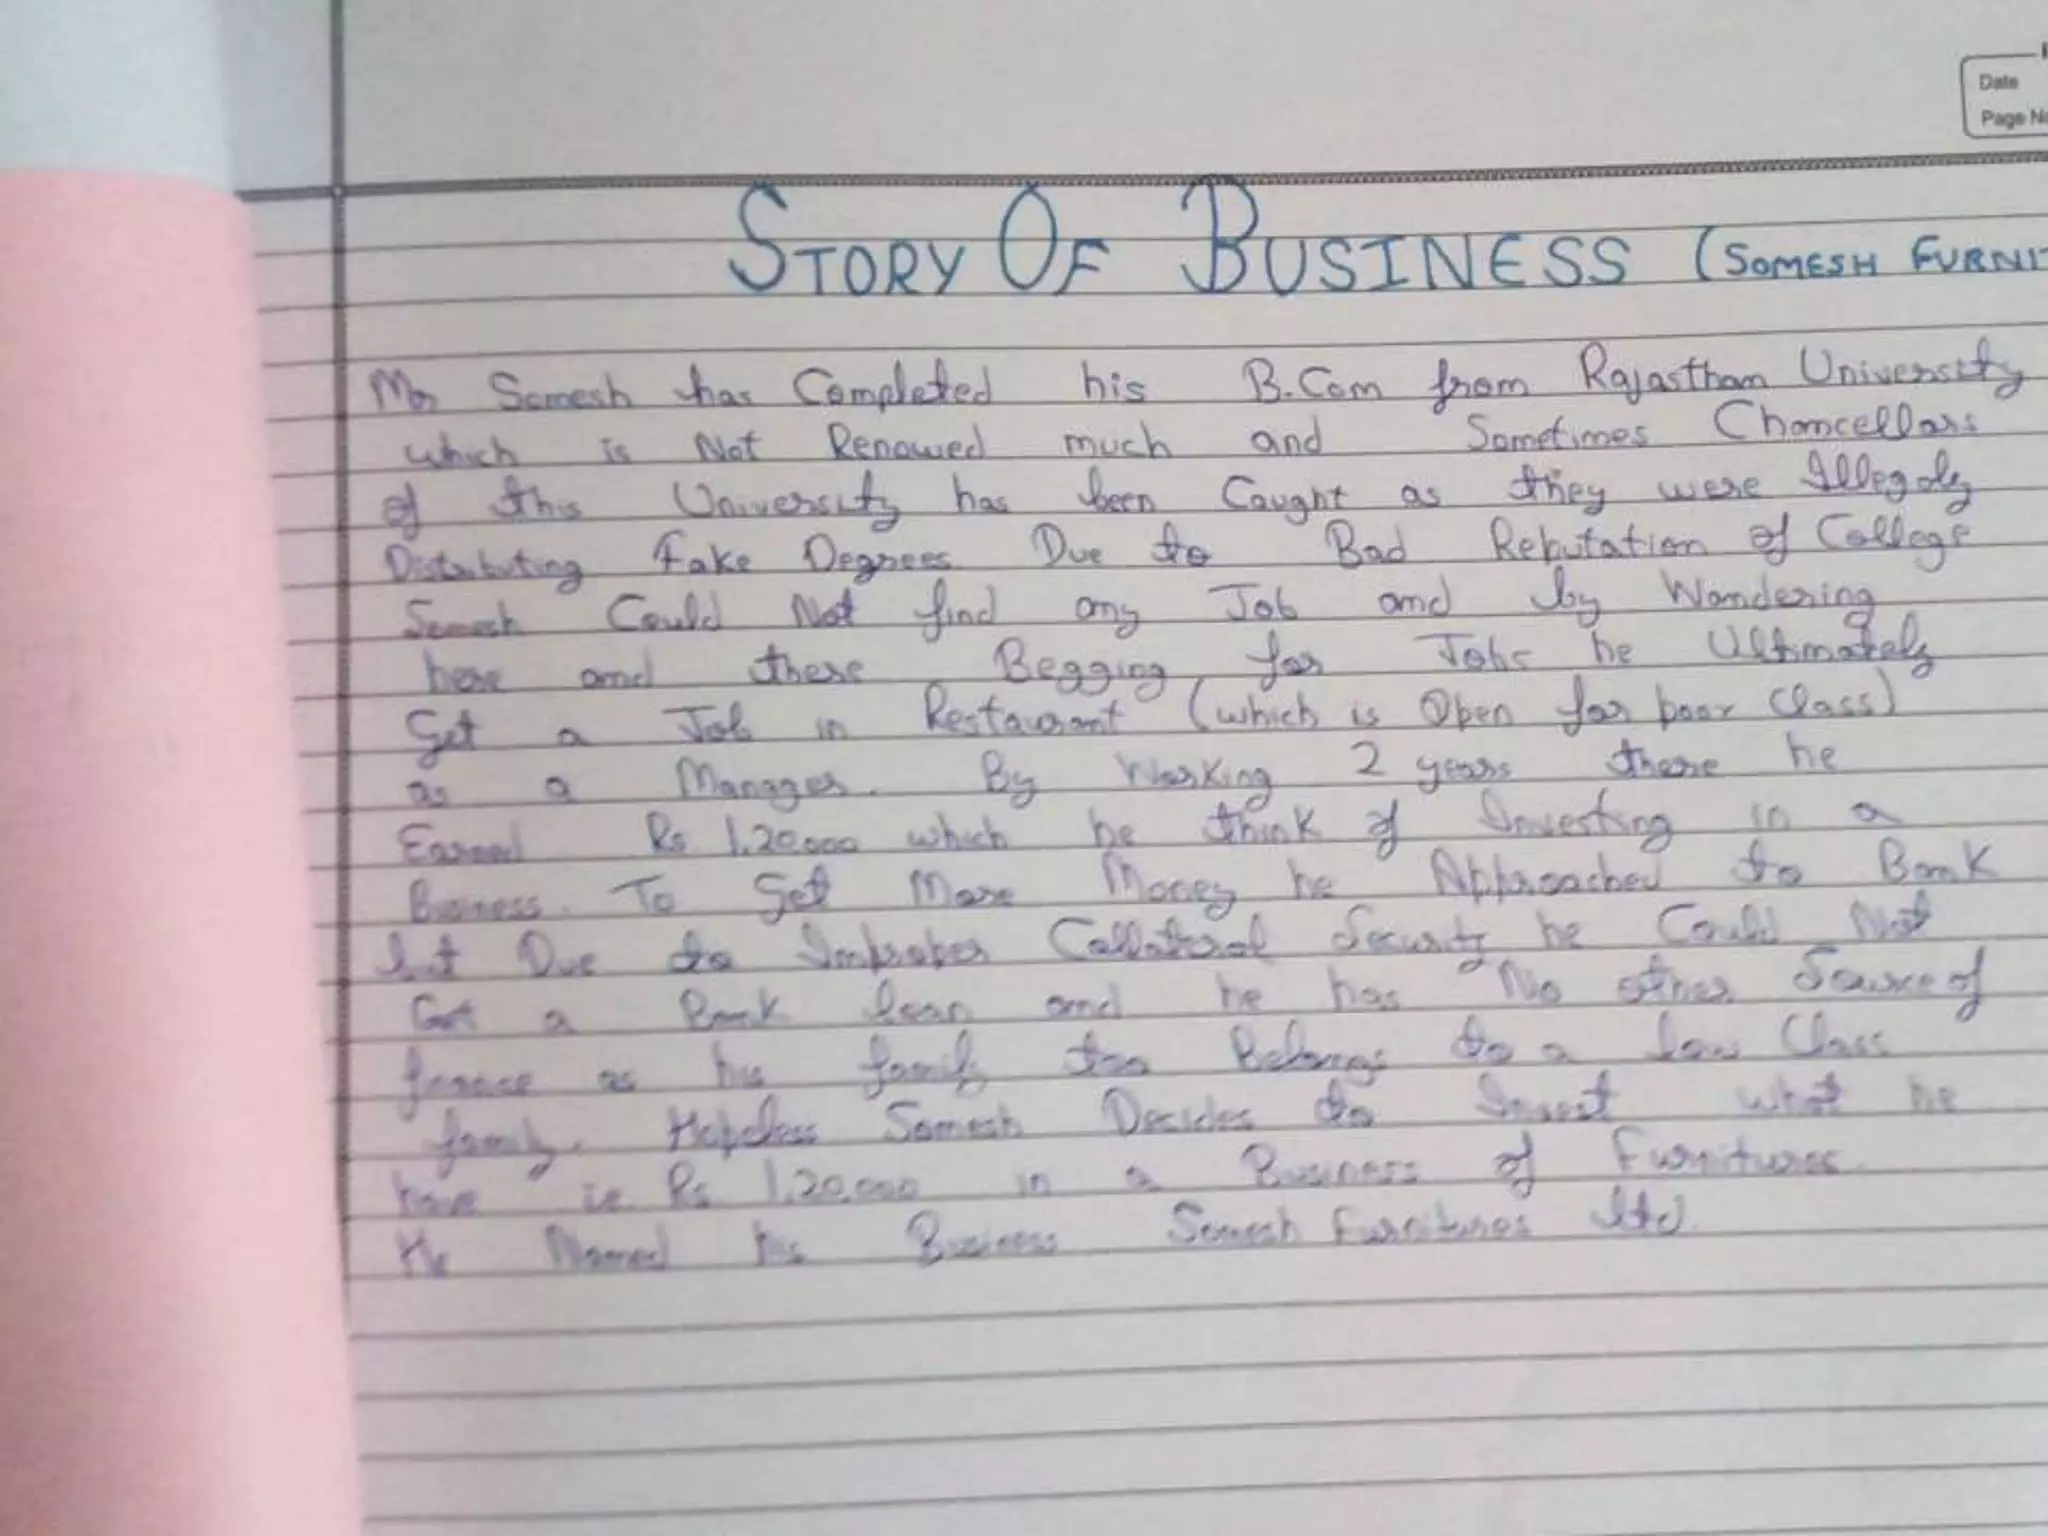 Date
Page No
STORY OF BUSINESS (SOMESH FURNIT
Mr Somesh has Completed his B.Com from Rajasthan University
which is Not Renowed much and Sometimes Chancellors
of this University has been Caught as they were Illegaly
Distributing Fake Degrees Due to Bad Reputation of College
Somesh Could Not find any Job and by Wandering
here and there Begging for Jobs he Ultimately
Get a Job in Restaurant (which is Open for poor Class)
as a Manager. By Working 2 years there he
Earned Rs 1,20,000 which he think of Investing in a
Business. To Get More Money he Approached to Bank
but Due to Improper Collateral Security he Could Not
Got a Bank loan and he has No other Source of
finance as his family too Belongs to a low Class
family. Helpless Somesh Decides to Invest what he
have ie Rs 1,20,000 in a Business of Furnitures.
He Named his Business Somesh Furnitures ltd.